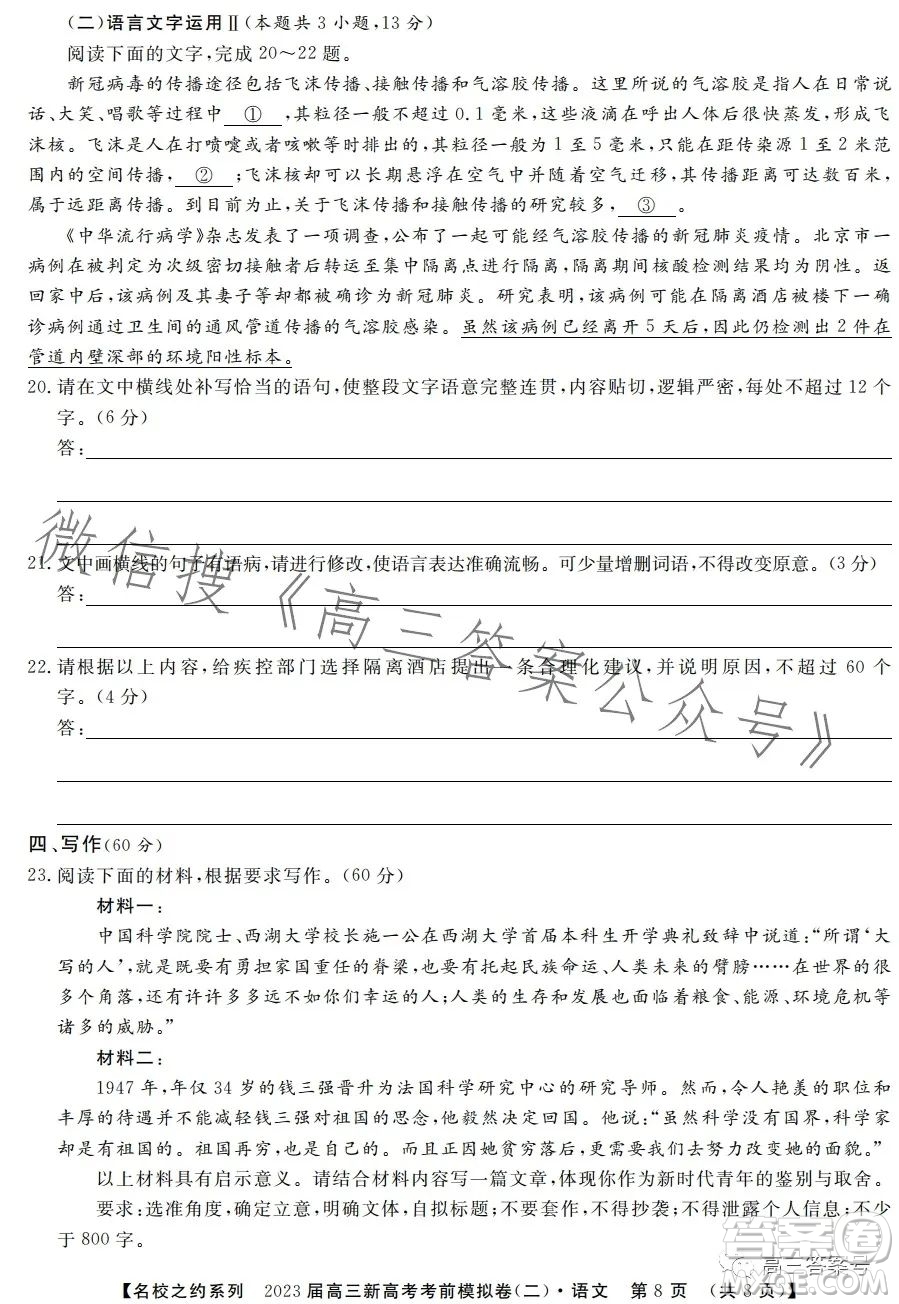 (二)语言文字运用Ⅱ(本题共3小题,13分)
阅读下面的文字,完成20～22题。
新冠病毒的传播途径包括飞沫传播、接触传播和气溶胶传播。这里所说的气溶胶是指人在日常说
话、大笑、唱歌等过程中 ① ,其粒径一般不超过0.1毫米,这些液滴在呼出人体后很快蒸发,形成飞
沫核。飞沫是人在打喷嚏或者咳嗽等时排出的,其粒径一般为1至5毫米,只能在距传染源1至2米范
围内的空间传播, ② ;飞沫核却可以长期悬浮在空气中并随空气迁移,其传播距离可达数百米,
属于远距离传播。到目前为止,关于飞沫传播和接触传播的研究较多, ③ 。
《中华流行病学》杂志发表了一项调查,公布了一起可能经气溶胶传播的新冠肺炎疫情。北京市一
病例在被判定为次级密切接触者后转运至集中隔离点进行隔离,隔离期间核酸检测结果均为阴性。返
回家中后,该病例及其妻子等却都被确诊为新冠肺炎。研究表明,该病例可能在隔离酒店被楼下一确
诊病例通过卫生间的通风管道传播的气溶胶感染。虽然该病例已经离开5天后,因此仍检测出2件在
管道内壁深部的环境阳性标本。
20.请在文中横线处补写恰当的语句,使整段文字语意完整连贯,内容贴切,逻辑严密,每处不超过12个
字。(6分)
答:
21.文中画横线的句子有语病,请进行修改,使语言表达准确流畅。可少量增删词语,不得改变原意。(3分)
答:
22.请根据以上内容,给疾控部门选择隔离酒店提出一条合理化建议,并说明原因,不超过60个
字。(4分)
答:
微信搜《高三答案公众号》
四、写作(60分)
23.阅读下面的材料,根据要求写作。(60分)
材料一:
中国科学院院士、西湖大学校长施一公在西湖大学首届本科生开学典礼致辞中说道:“所谓‘大
写的人’,就是既要有勇担家国重任的脊梁,也要有托起民族命运、人类未来的臂膀……在世界的很
多个角落,还有许许多多远不如你们幸运的人;人类的生存和发展也面临着粮食、能源、环境危机等
诸多的威胁。”
材料二:
1947年,年仅34岁的钱三强晋升为法国科学研究中心的研究导师。然而,令人艳美的职位和
丰厚的待遇并不能减轻钱三强对祖国的思念,他毅然决定回国。他说:“虽然科学没有国界,科学家
却是有祖国的。祖国再穷,也是自己的。而且正因她贫穷落后,更需要我们去努力改变她的面貌。”
以上材料具有启示意义。请结合材料内容写一篇文章,体现你作为新时代青年的鉴别与取舍。
要求:选准角度,确定立意,明确文体,自拟标题;不要套作,不得抄袭;不得泄露个人信息;不少
于800字。
答案圈
高三答案号
【名校之约系列 2023届高三新高考考前模拟卷(二)·语文 第8页 (共8页)】